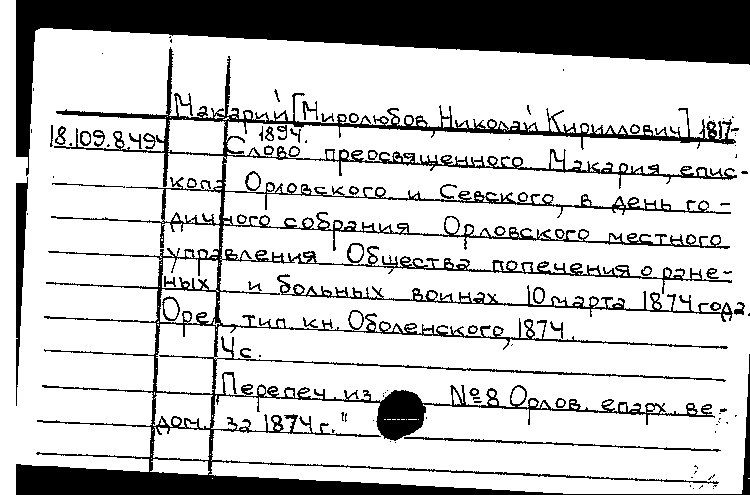 Макарий [Миролюбов, Николай Кириллович], 1817-
1894.
18.109.8.494 Слово преосвященного Макария, епис-
копа Орловского и Севского, в день го-
дичного собрания Орловского местного
управления Общества попечения о ране-
ных и больных воинах 10 марта 1874 года.
Орел, тип. кн. Оболенского, 1874.
4 с.
"Перепеч. из № 8 Орлов. епарх. ве-
дом. за 1874 г."